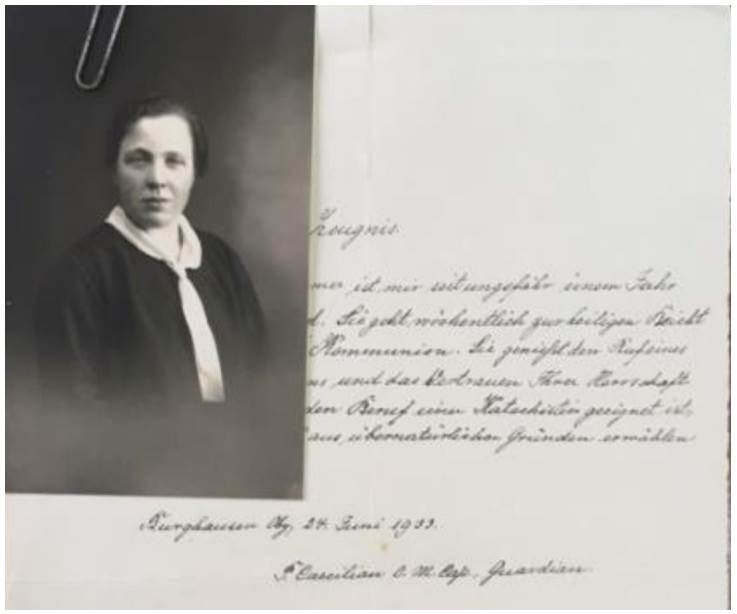 Zeugnis.
mer ist mir seit ungefähr einem Jahr
Sie geht wöchentlich zur heiligen Beicht
Kommunion. Sie genießt den Ruf eines
und das Vertrauen Ihrer Herrschaft
den Beruf einer Katechistin geeignet ist,
aus übernatürlichen Gründen erwählen
Burghausen Oby, 24. Juni 1933.
P. Caecilian O. M. Cap., Guardian